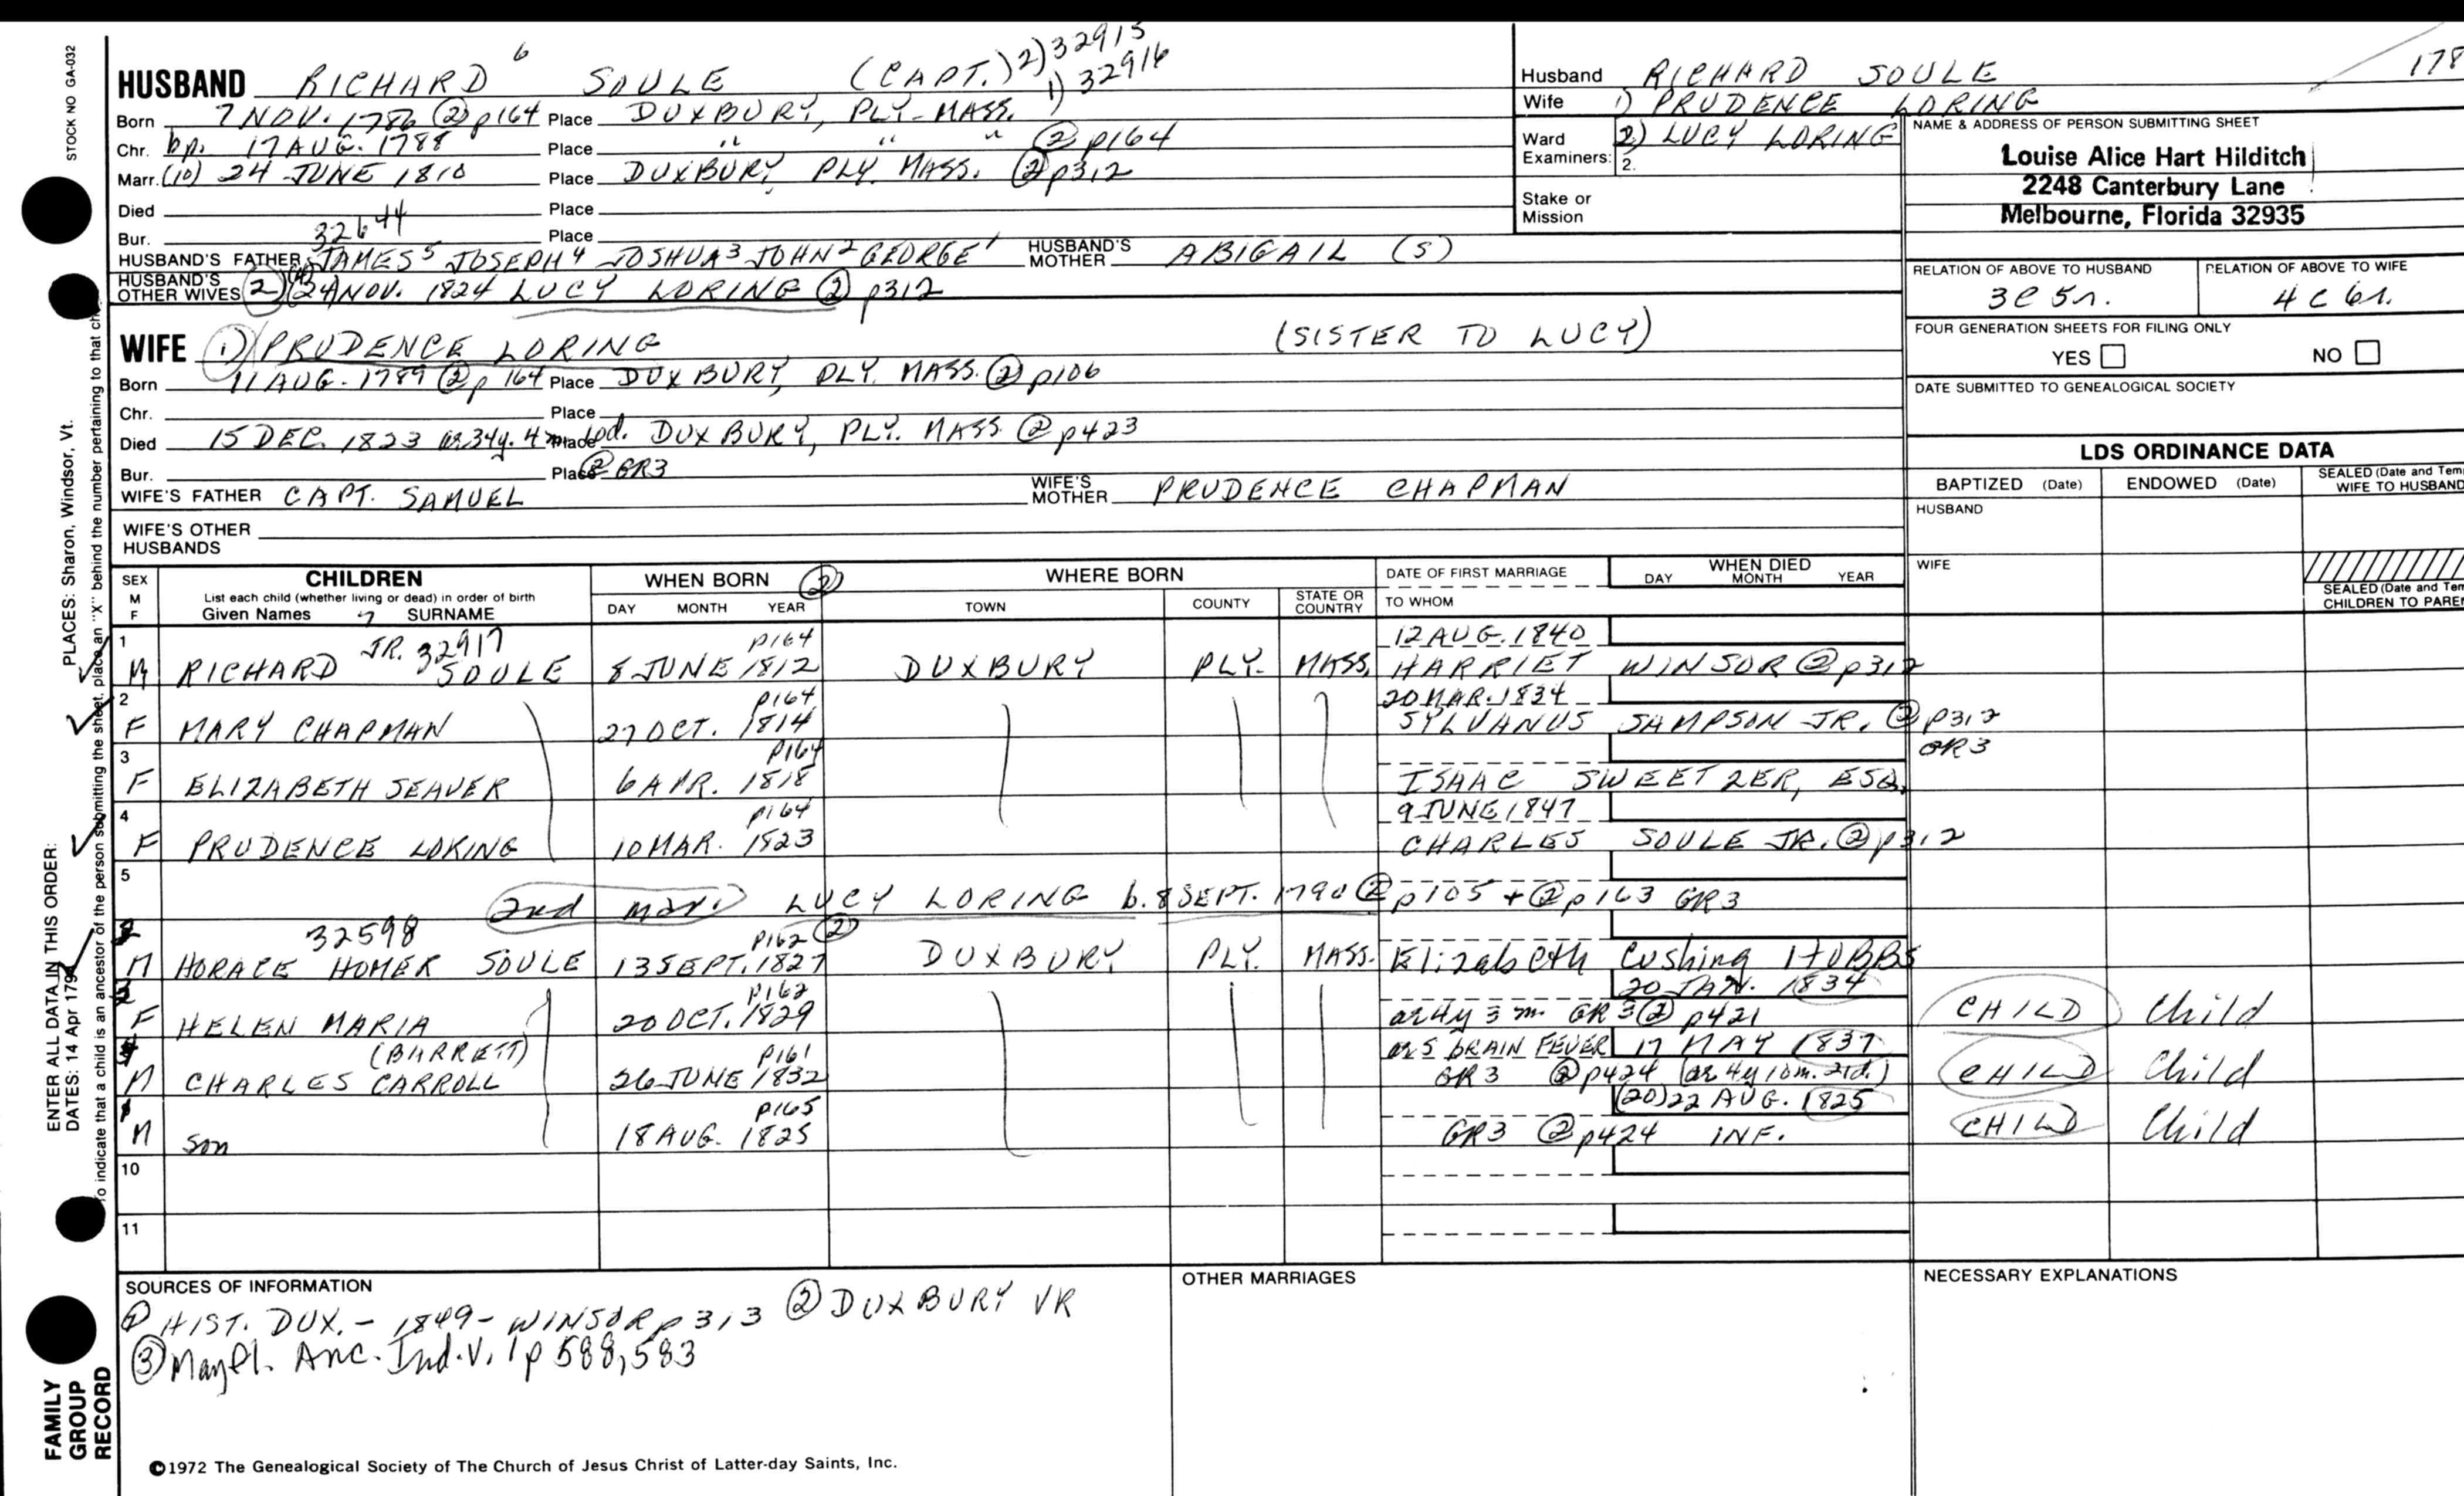 STOCK NO GA-032
HUSBAND RICHARD 6 SOULE (CAPT.) 2) 32915
1) 32916
Born 7 NOV. 1786 ② p164 Place DUXBURY, PLY. MASS.
Chr. bp. 17 AUG. 1788 Place " " " ② p164
Marr. (10) 24 JUNE 1810 Place DUXBURY, PLY. MASS. ② p312
Died Place
Bur. 32644 Place
HUSBAND'S FATHER JAMES 5 JOSEPH 4 JOSHUA 3 JOHN 2 GEORGE 1 HUSBAND'S MOTHER ABIGAIL (S)
HUSBAND'S OTHER WIVES 2) 24 NOV. 1824 LUCY LORING ② p312
WIFE 1) PRUDENCE LORING (SISTER TO LUCY)
Born 11 AUG. 1789 ② p 164 Place DUXBURY, PLY. MASS. ② p106
Chr. Place
Died 15 DEC. 1823 ae 34y. 4m Place DUXBURY, PLY. MASS ② p423
Bur. Place ② GR3
WIFE'S FATHER CAPT. SAMUEL WIFE'S MOTHER PRUDENCE CHAPMAN
WIFE'S OTHER HUSBANDS
Husband RICHARD SOULE 178
Wife 1) PRUDENCE LORING
Ward 2) LUCY LORING
Examiners: 2.
Stake or Mission
NAME & ADDRESS OF PERSON SUBMITTING SHEET
Louise Alice Hart Hilditch
2248 Canterbury Lane
Melbourne, Florida 32935
RELATION OF ABOVE TO HUSBAND RELATION OF ABOVE TO WIFE
3C 5r. 4C 6r.
FOUR GENERATION SHEETS FOR FILING ONLY
YES NO
DATE SUBMITTED TO GENEALOGICAL SOCIETY
LDS ORDINANCE DATA
BAPTIZED (Date) ENDOWED (Date) SEALED (Date and Tem
WIFE TO HUSBAND
HUSBAND
WIFE
SEALED (Date and Tem
CHILDREN TO PARE
SEX M F CHILDREN WHEN BORN ② WHERE BORN DATE OF FIRST MARRIAGE WHEN DIED
List each child (whether living or dead) in order of birth
Given Names 7 SURNAME DAY MONTH YEAR TOWN COUNTY STATE OR COUNTRY TO WHOM DAY MONTH YEAR
1 JR. 32917 p164 12 AUG. 1840
M RICHARD SOULE 8 JUNE 1812 DUXBURY PLY. MASS. HARRIET WINSOR ② p312
2 p164 20 MAR. 1834
F MARY CHAPMAN 27 OCT. 1814 SYLVANUS SAMPSON JR. ② p312
3 p164 GR3
F ELIZABETH SEAVER 6 APR. 1818 ISAAC SWEETZER, ESQ.
4 p164 9 JUNE 1847
F PRUDENCE LORING 10 MAR. 1823 CHARLES SOULE JR. ② p312
5
2nd marr. LUCY LORING b. 8 SEPT. 1790 ② p105 + ② p163 GR3
32598 p162 ②
M HORACE HOMER SOULE 13 SEPT. 1827 DUXBURY PLY. MASS. Elizabeth Cushing HOBBS
p162 20 JAN. 1834
F HELEN MARIA 20 OCT. 1829 ae 4y 3 m. GR 3 ② p421 CHILD Child
(BARRETT) p161 ae 5 BRAIN FEVER 17 MAY 1837
M CHARLES CARROLL 26 JUNE 1832 GR 3 ② p424 (ae 4y 10m. 21d.) CHILD Child
p165 (20) 22 AUG. 1825
M son 18 AUG. 1825 GR3 ② p424 INF. CHILD Child
10
11
SOURCES OF INFORMATION
① HIST. DUX. - 1849 - WINSOR p 313 ② DUXBURY VR
③ Mayfl. Anc. Ind. V. 1 p 588, 583
OTHER MARRIAGES
NECESSARY EXPLANATIONS
©1972 The Genealogical Society of The Church of Jesus Christ of Latter-day Saints, Inc.
PLACES: Sharon, Windsor, Vt.
ENTER ALL DATA IN THIS ORDER:
DATES: 14 Apr 179
To indicate that a child is an ancestor of the person submitting the sheet, place an "X" behind the number pertaining to that ch
FAMILY
GROUP
RECORD